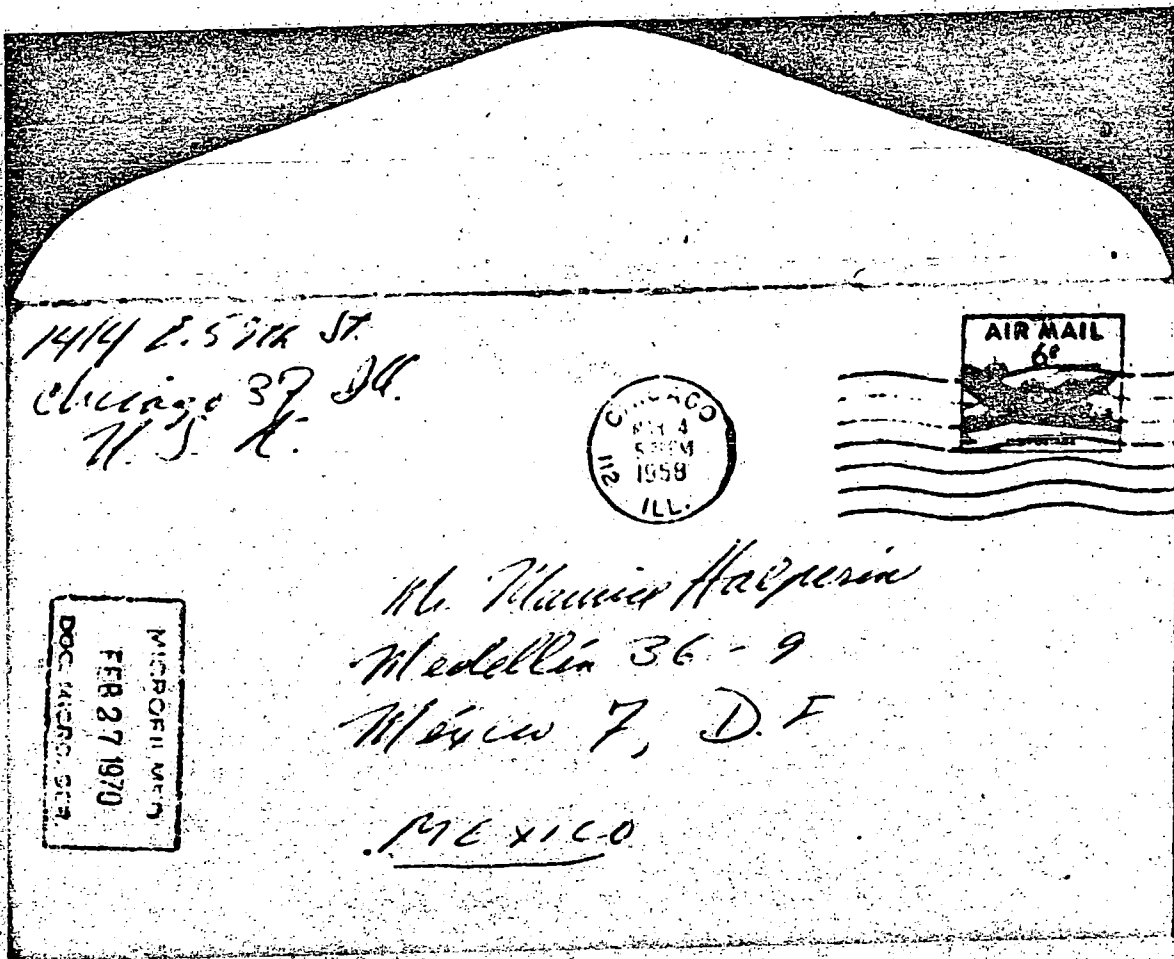 1414 E. 59th St.
Chicago 37 Ill.
U. S. A.
AIR MAIL
6¢
CHICAGO
4
PM
1958
112
ILL.
Mr. Maurice Halperin
Medellín 36 - 9
México 7, D. F
MEXICO
MICROFILMED
FEB 27 1970
DOC. MICRO. SER.